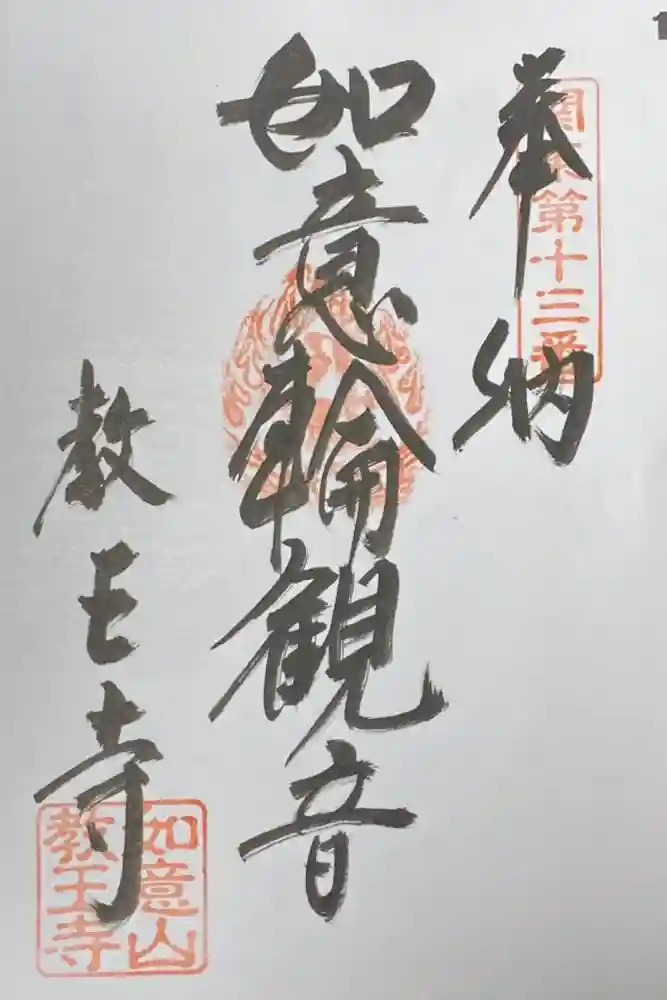 奉納
第十三番
如意輪観音
教王寺
如意山
教王寺